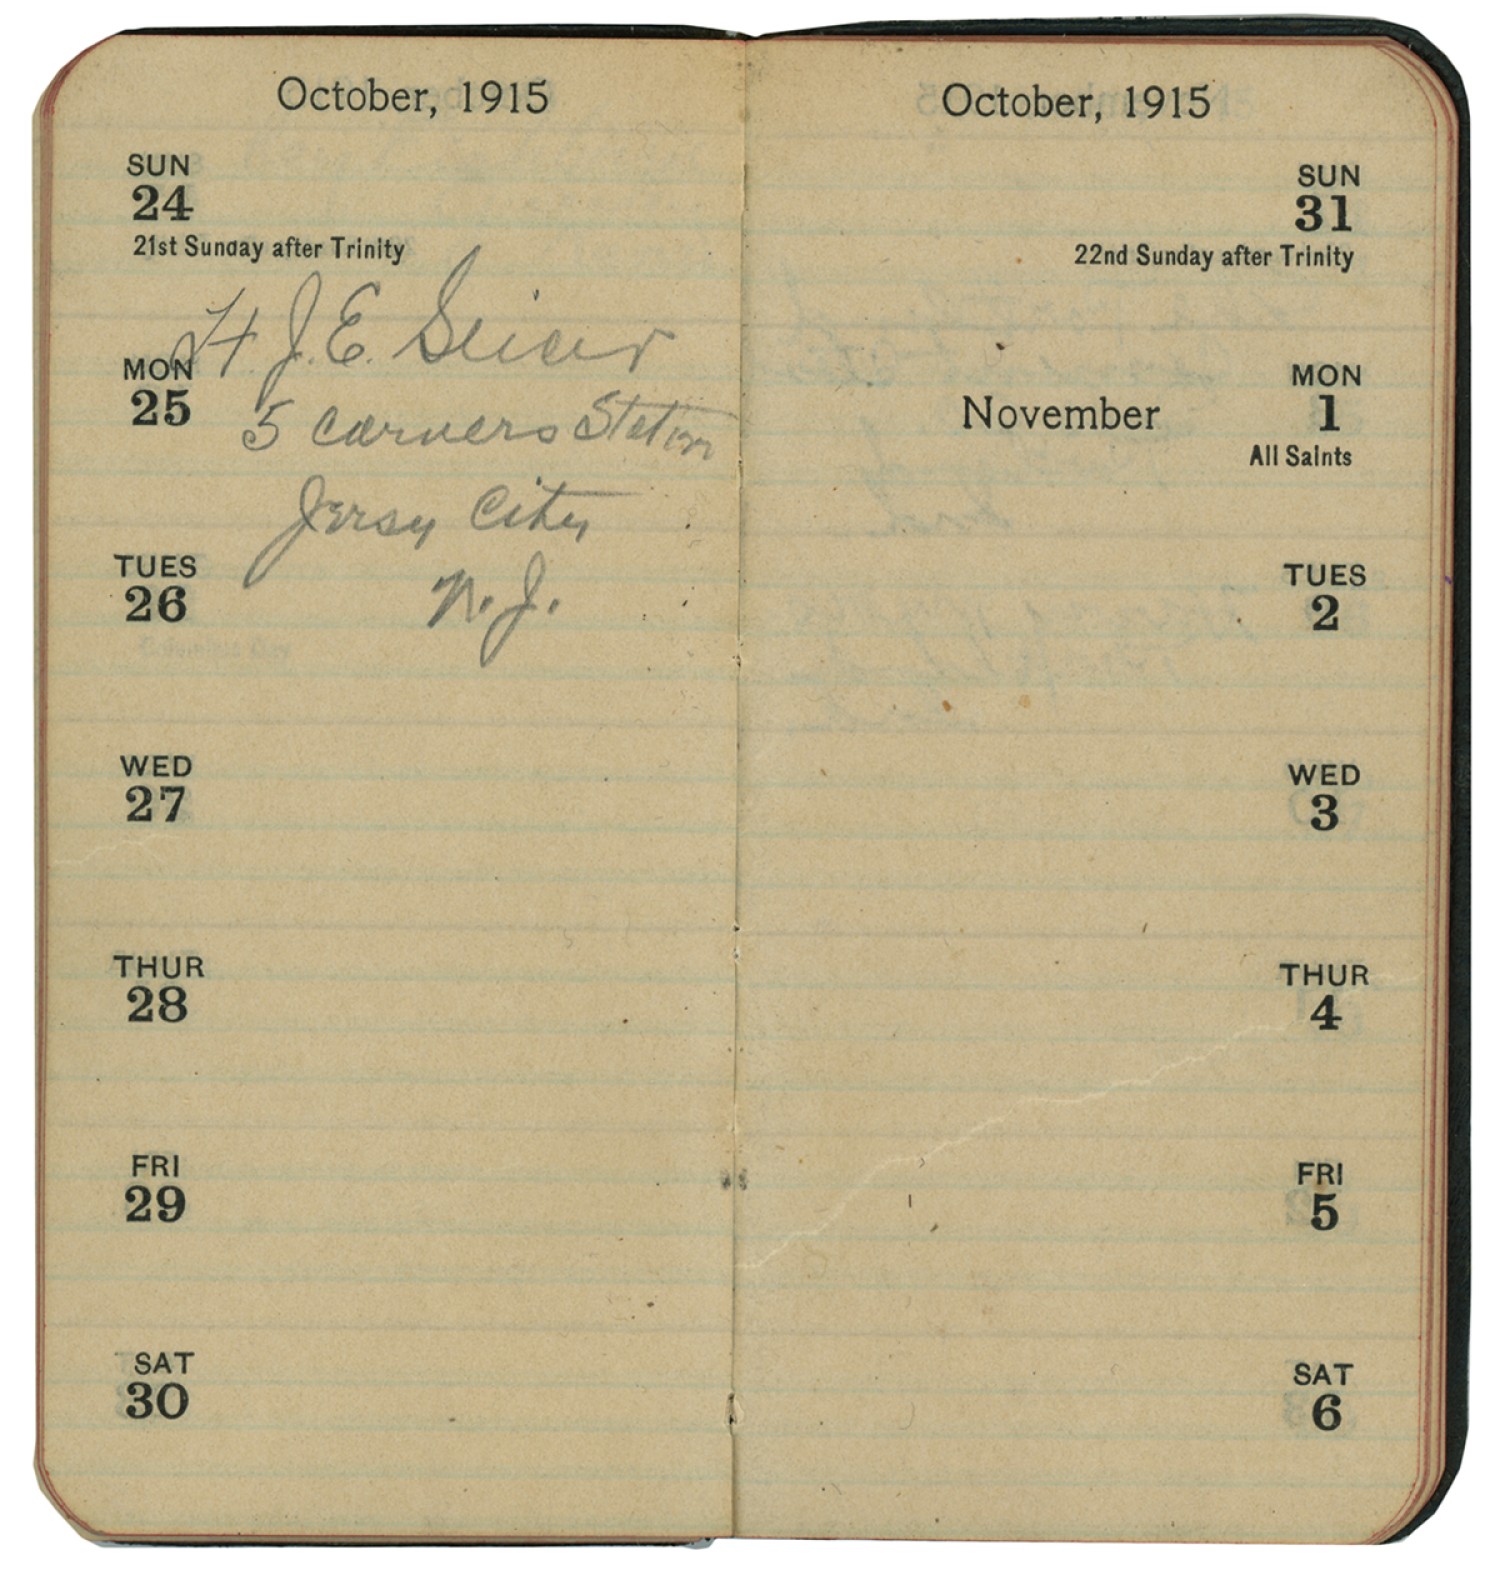 October, 1915
SUN
24
21st Sunday after Trinity
H. J. E.
MON
25
5 corners Station
Jersey City
TUES
26
N. J.
WED
27
THUR
28
FRI
29
SAT
30
October, 1915
SUN
31
22nd Sunday after Trinity
MON
November 1
All Saints
TUES
2
WED
3
THUR
4
FRI
5
SAT
6